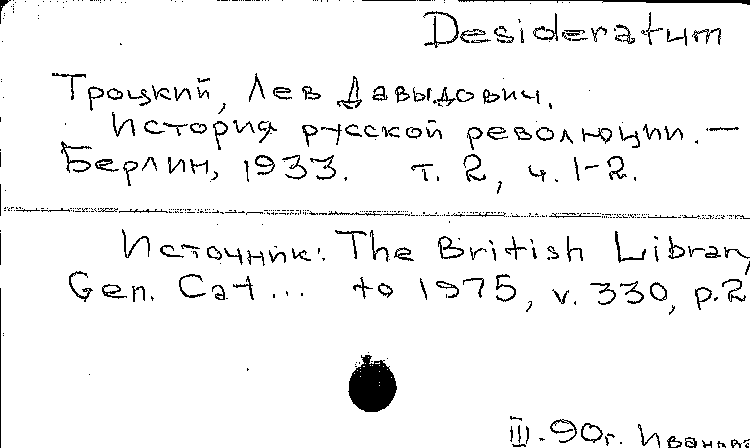 Desideratum
Троцкий, Лев Давыдович.
История русской революции. —
Берлин, 1933. т. 2, ч. 1-2.
Источник: The British Library
Gen. Cat... to 1975, v. 330, p. 2
III. 90г. Иванова